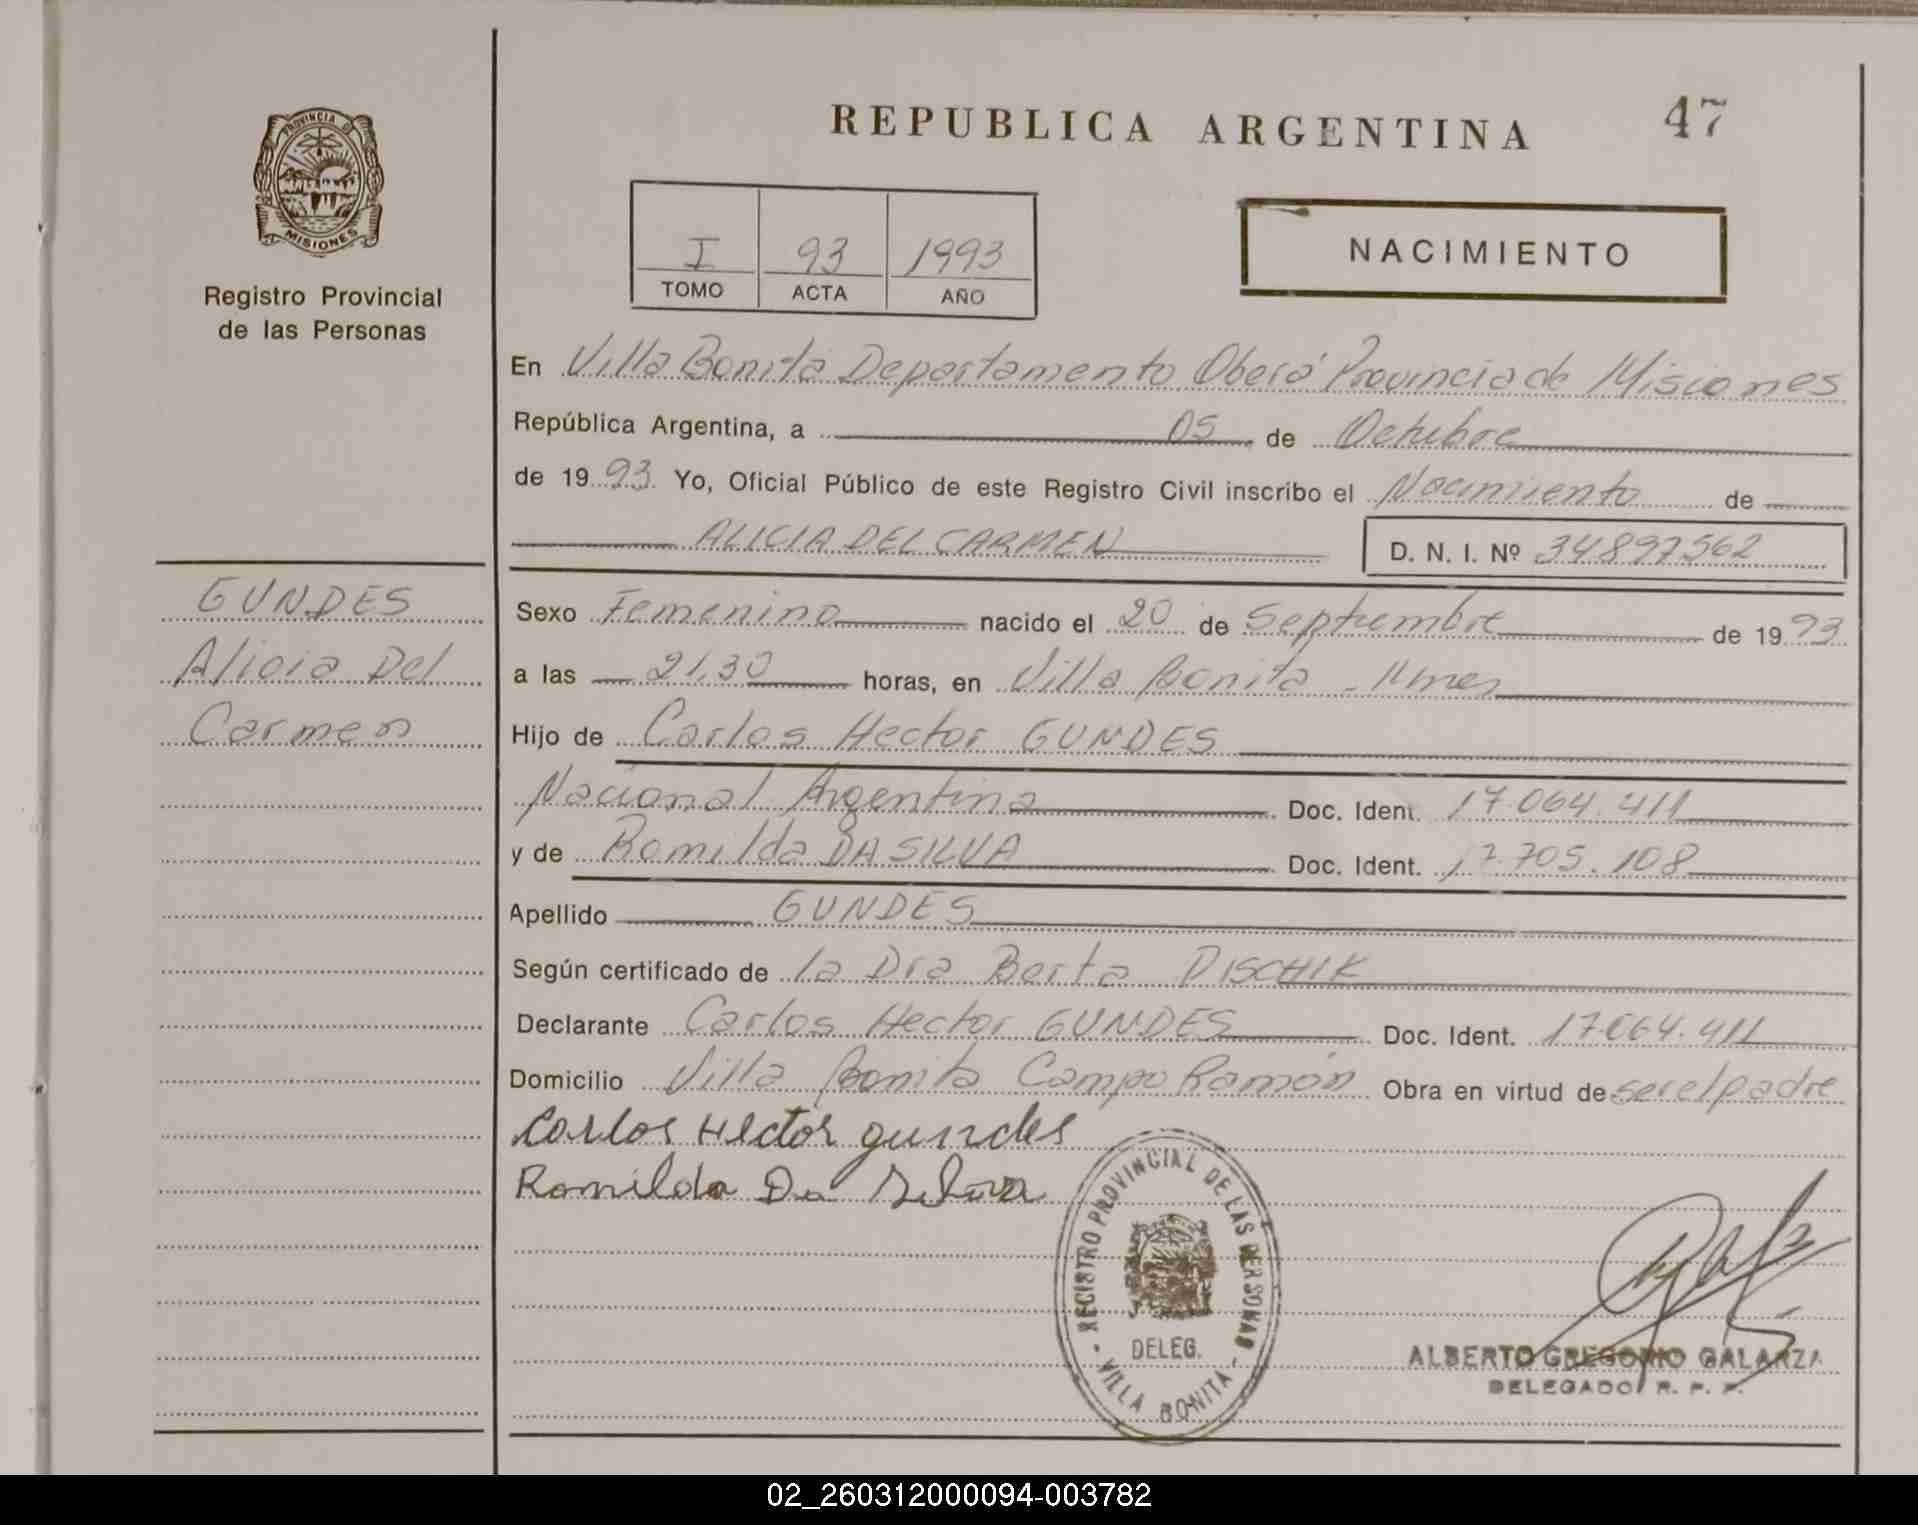 REPUBLICA ARGENTINA
47
PROVINCIA DE
MISIONES
Registro Provincial
de las Personas
I 93 1993
TOMO ACTA AÑO
NACIMIENTO
En Villa Bonita Departamento Oberá Provincia de Misiones
República Argentina, a 05 de Octubre
de 1993 Yo, Oficial Público de este Registro Civil inscribo el Nacimiento de
ALICIA DEL CARMEN D. N. I. Nº 34897562
GUNDES
Alicia Del
Carmen
Sexo Femenino nacido el 20 de Septiembre de 1993
a las 21,30 horas, en Villa Bonita
Hijo de Carlos Hector GUNDES
Nacional Argentina Doc. Ident. 17.064.411
y de Romilda DA SILVA Doc. Ident. 17.705.108
Apellido GUNDES
Según certificado de la Dra Berta DISCHIK
Declarante Carlos Hector GUNDES Doc. Ident. 17.064.411
Domicilio Villa Bonita Campo Ramón Obra en virtud de ser el padre
Carlos Hector gundes
Romilda Da Silva
REGISTRO PROVINCIAL DE LAS PERSONAS
DELEG.
- VILLA BONITA -
ALBERTO GREGORIO GALARZA
DELEGADO R. P. P.
02_260312000094-003782